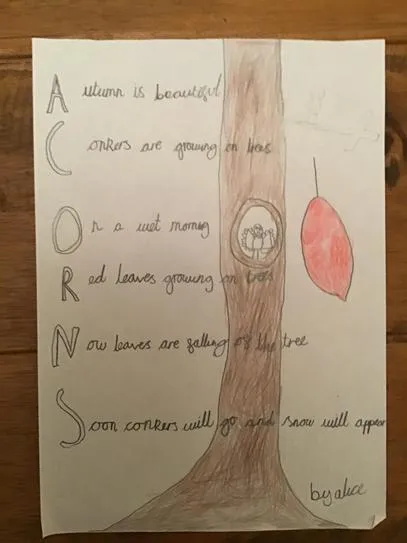 Autumn is beautiful
Conkers are growing on trees
On a wet morning
Red leaves growing on trees
Now leaves are falling of the tree
Soon conkers will go and snow will appear
by alice